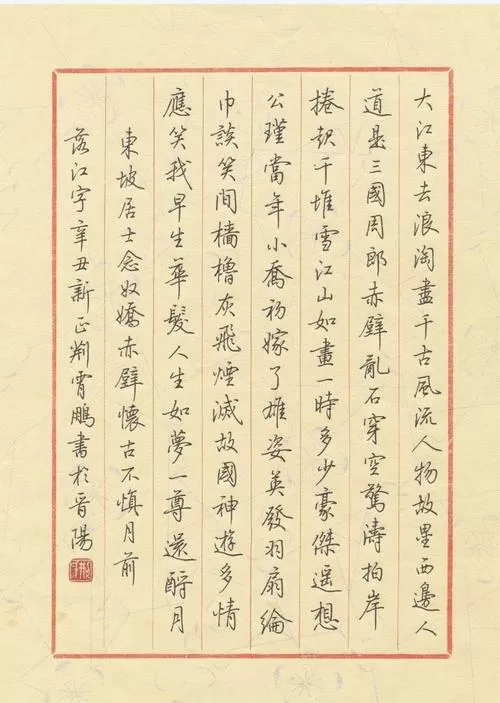 大江東去浪淘盡千古風流人物故壘西邊人
道是三國周郎赤壁亂石穿空驚濤拍岸
捲起千堆雪江山如畫一時多少豪傑遥想
公瑾當年小喬初嫁了雄姿英發羽扇綸
巾談笑間檣櫓灰飛煙滅故國神遊多情
應笑我早生華髮人生如夢一尊還酹月
東坡居士念奴嬌赤壁懷古不慎月前
落江字辛丑新正荆霄鵬書於晉陽